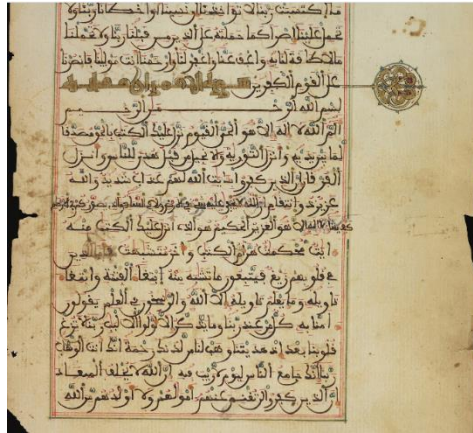 ما اكتسبت ربنا لا تواخذنا ان نسينا او اخطانا ربنا ولا
تحمل علينا اصرا كما حملته على الذين من قبلنا ربنا ولا تحملنا
ما لا طاقة لنا به واعف عنا واغفر لنا وارحمنا انت مولينا فانصرنا
على القوم الكفرين سورة ال عمران
بسم الله الرحمن الرحيم
الم الله لا اله الا هو الحي القيوم نزل عليك الكتب بالحق مصدقا
لما بين يديه وانزل التورية والانجيل من قبل هدى للناس وانزل
الفرقان ان الذين كفروا بايت الله لهم عذاب شديد والله
عزيز ذو انتقام ان الله لا يخفى عليه شيء في الارض ولا في السماء هو الذي يصوركم في الارحام
كيف يشاء لا اله الا هو العزيز الحكيم هو الذي انزل عليك الكتب منه
ايت محكمت هن ام الكتب واخر متشبهت فاما الذين
في قلوبهم زيغ فيتبعون ما تشبه منه ابتغاء الفتنة وابتغاء
تاويله وما يعلم تاويله الا الله والرسخون في العلم يقولون
امنا به كل من عند ربنا وما يذكر الا اولوا الالبب ربنا لا تزغ
قلوبنا بعد اذ هديتنا وهب لنا من لدنك رحمة انك انت الوهاب
ربنا انك جامع الناس ليوم لا ريب فيه ان الله لا يخلف الميعاد
ان الذين كفروا لن تغني عنهم امولهم ولا اولدهم من الله